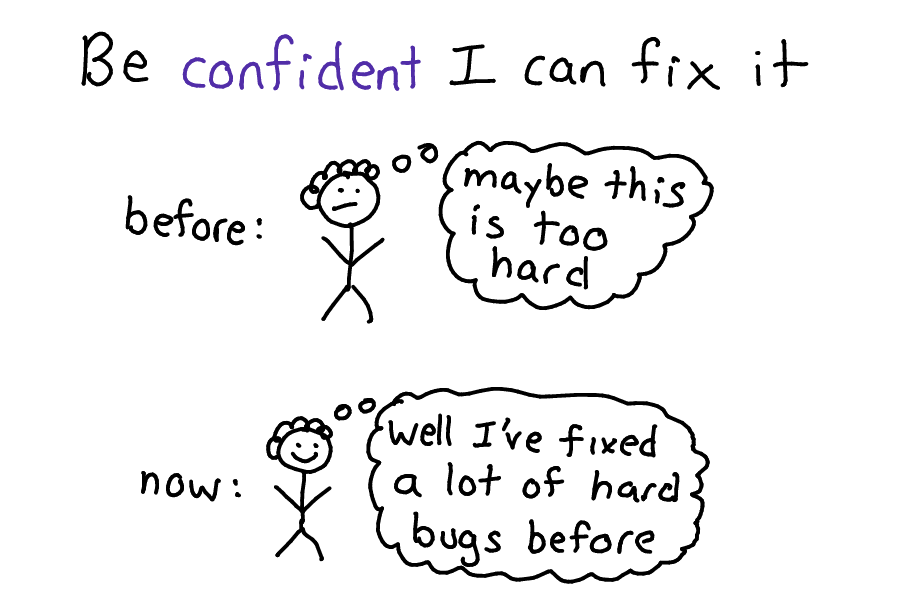 Be confident I can fix it
before:
maybe this
is too
hard
now:
well I've fixed
a lot of hard
bugs before